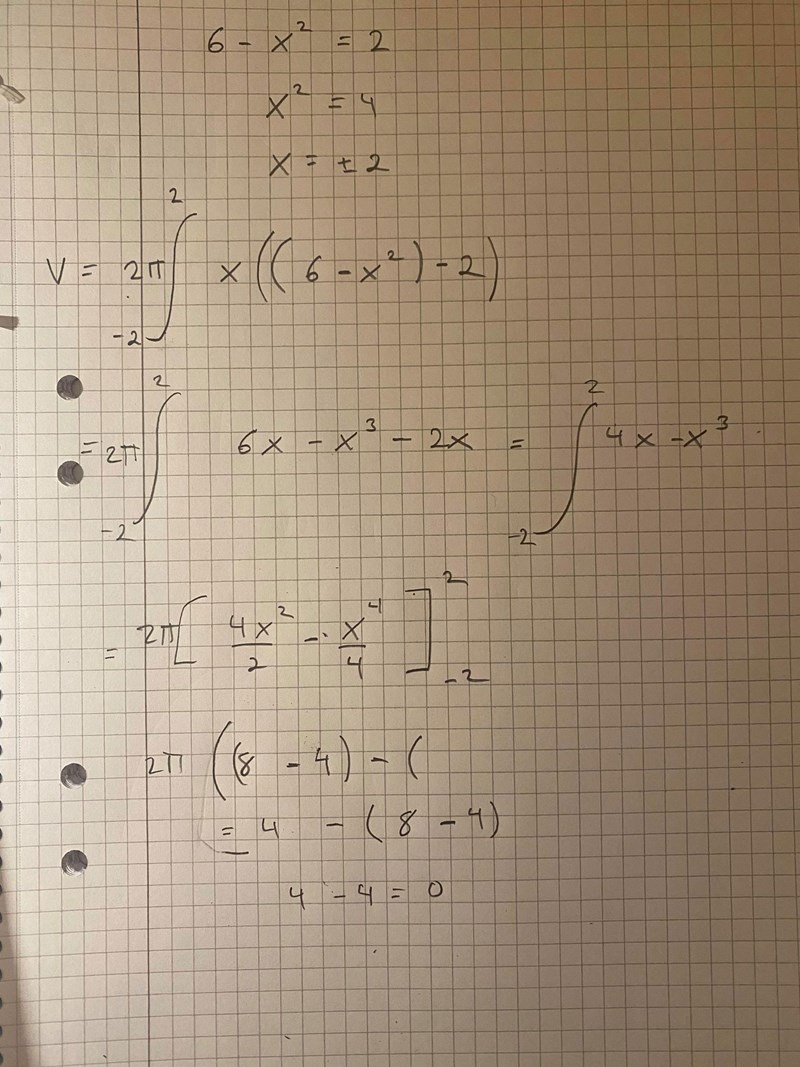 6 - x² = 2
x² = 4
x = ± 2
V = 2π ∫₋₂² x((6 - x²) - 2)
= 2π ∫₋₂² 6x - x³ - 2x = ∫₋₂² 4x - x³
= 2π [4x²/2 - x⁴/4]₋₂²
2π ((8 - 4) - (
= 4 - (8 - 4)
4 - 4 = 0